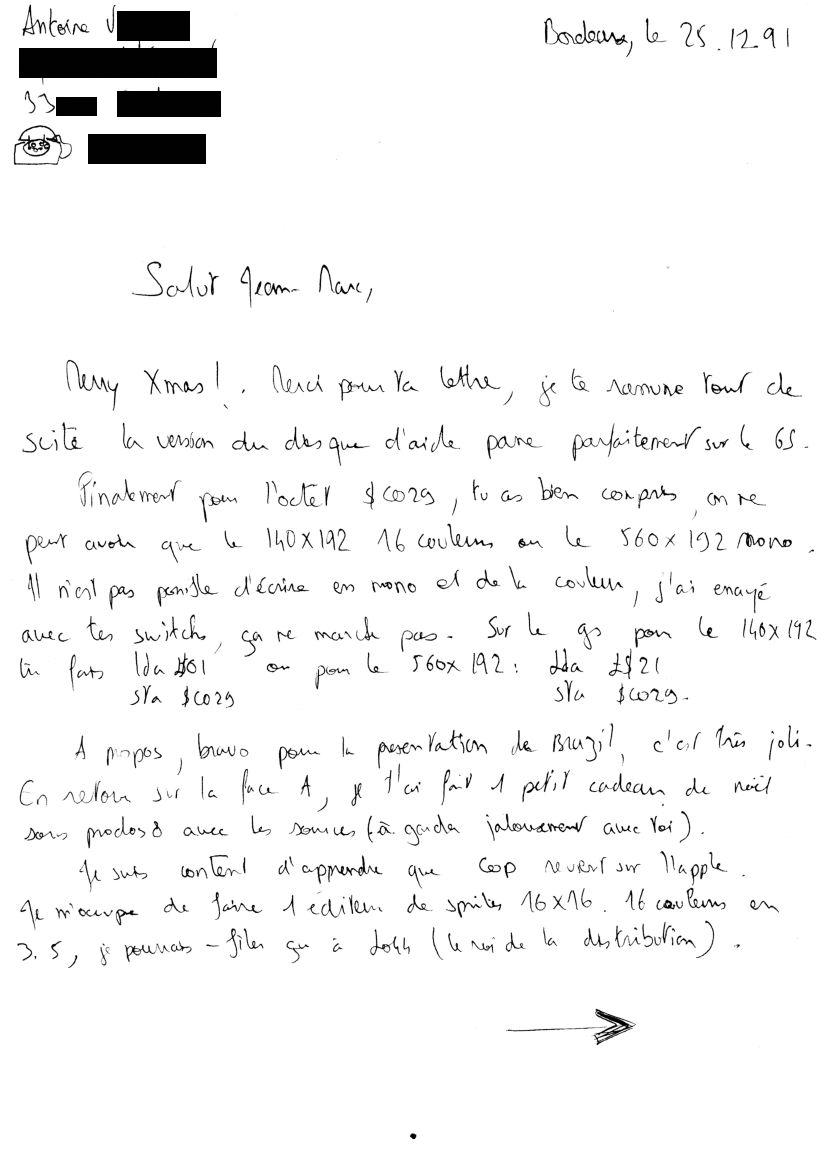 Antoine V
Bordeaux, le 25.12.91
33
Salut Jean-Marc,
Merry Xmas !. Merci pour ta lettre, je te rassure tout de
suite la version du disque d'aide passe parfaitement sur le GS.
Finalement pour l'octet $C029, tu as bien compris, on ne
peut avoir que le 140x192 16 couleurs ou le 560x192 mono.
Il n'est pas possible d'écrire en mono et de la couleur, j'ai essayé
avec tes switchs, ça ne marche pas. Sur le gs pour le 140x192
tu fais lda $01 ou pour le 560x192 : lda £$21
sta $C029 sta $C029.
A propos, bravo pour la présentation de Brazil, c'est très joli.
En retour sur la face A, je t'ai fait 1 petit cadeau de noël
sous prodos8 avec les sources (à garder jalousement avec toi).
Je suis content d'apprendre que COOP revient sur l'apple.
Je m'occupe de faire 1 éditeur de sprites 16x16. 16 couleurs en
3.5, je pourrais filer ça à (le roi de la distribution).